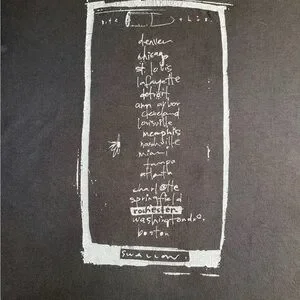 denver
chicago
st. louis
lafayette
detroit
ann arbor
cleveland
louisville
memphis
nashville
miami
tampa
atlanta
charlotte
springfield
rochester
washington d.c.
boston
swallow.